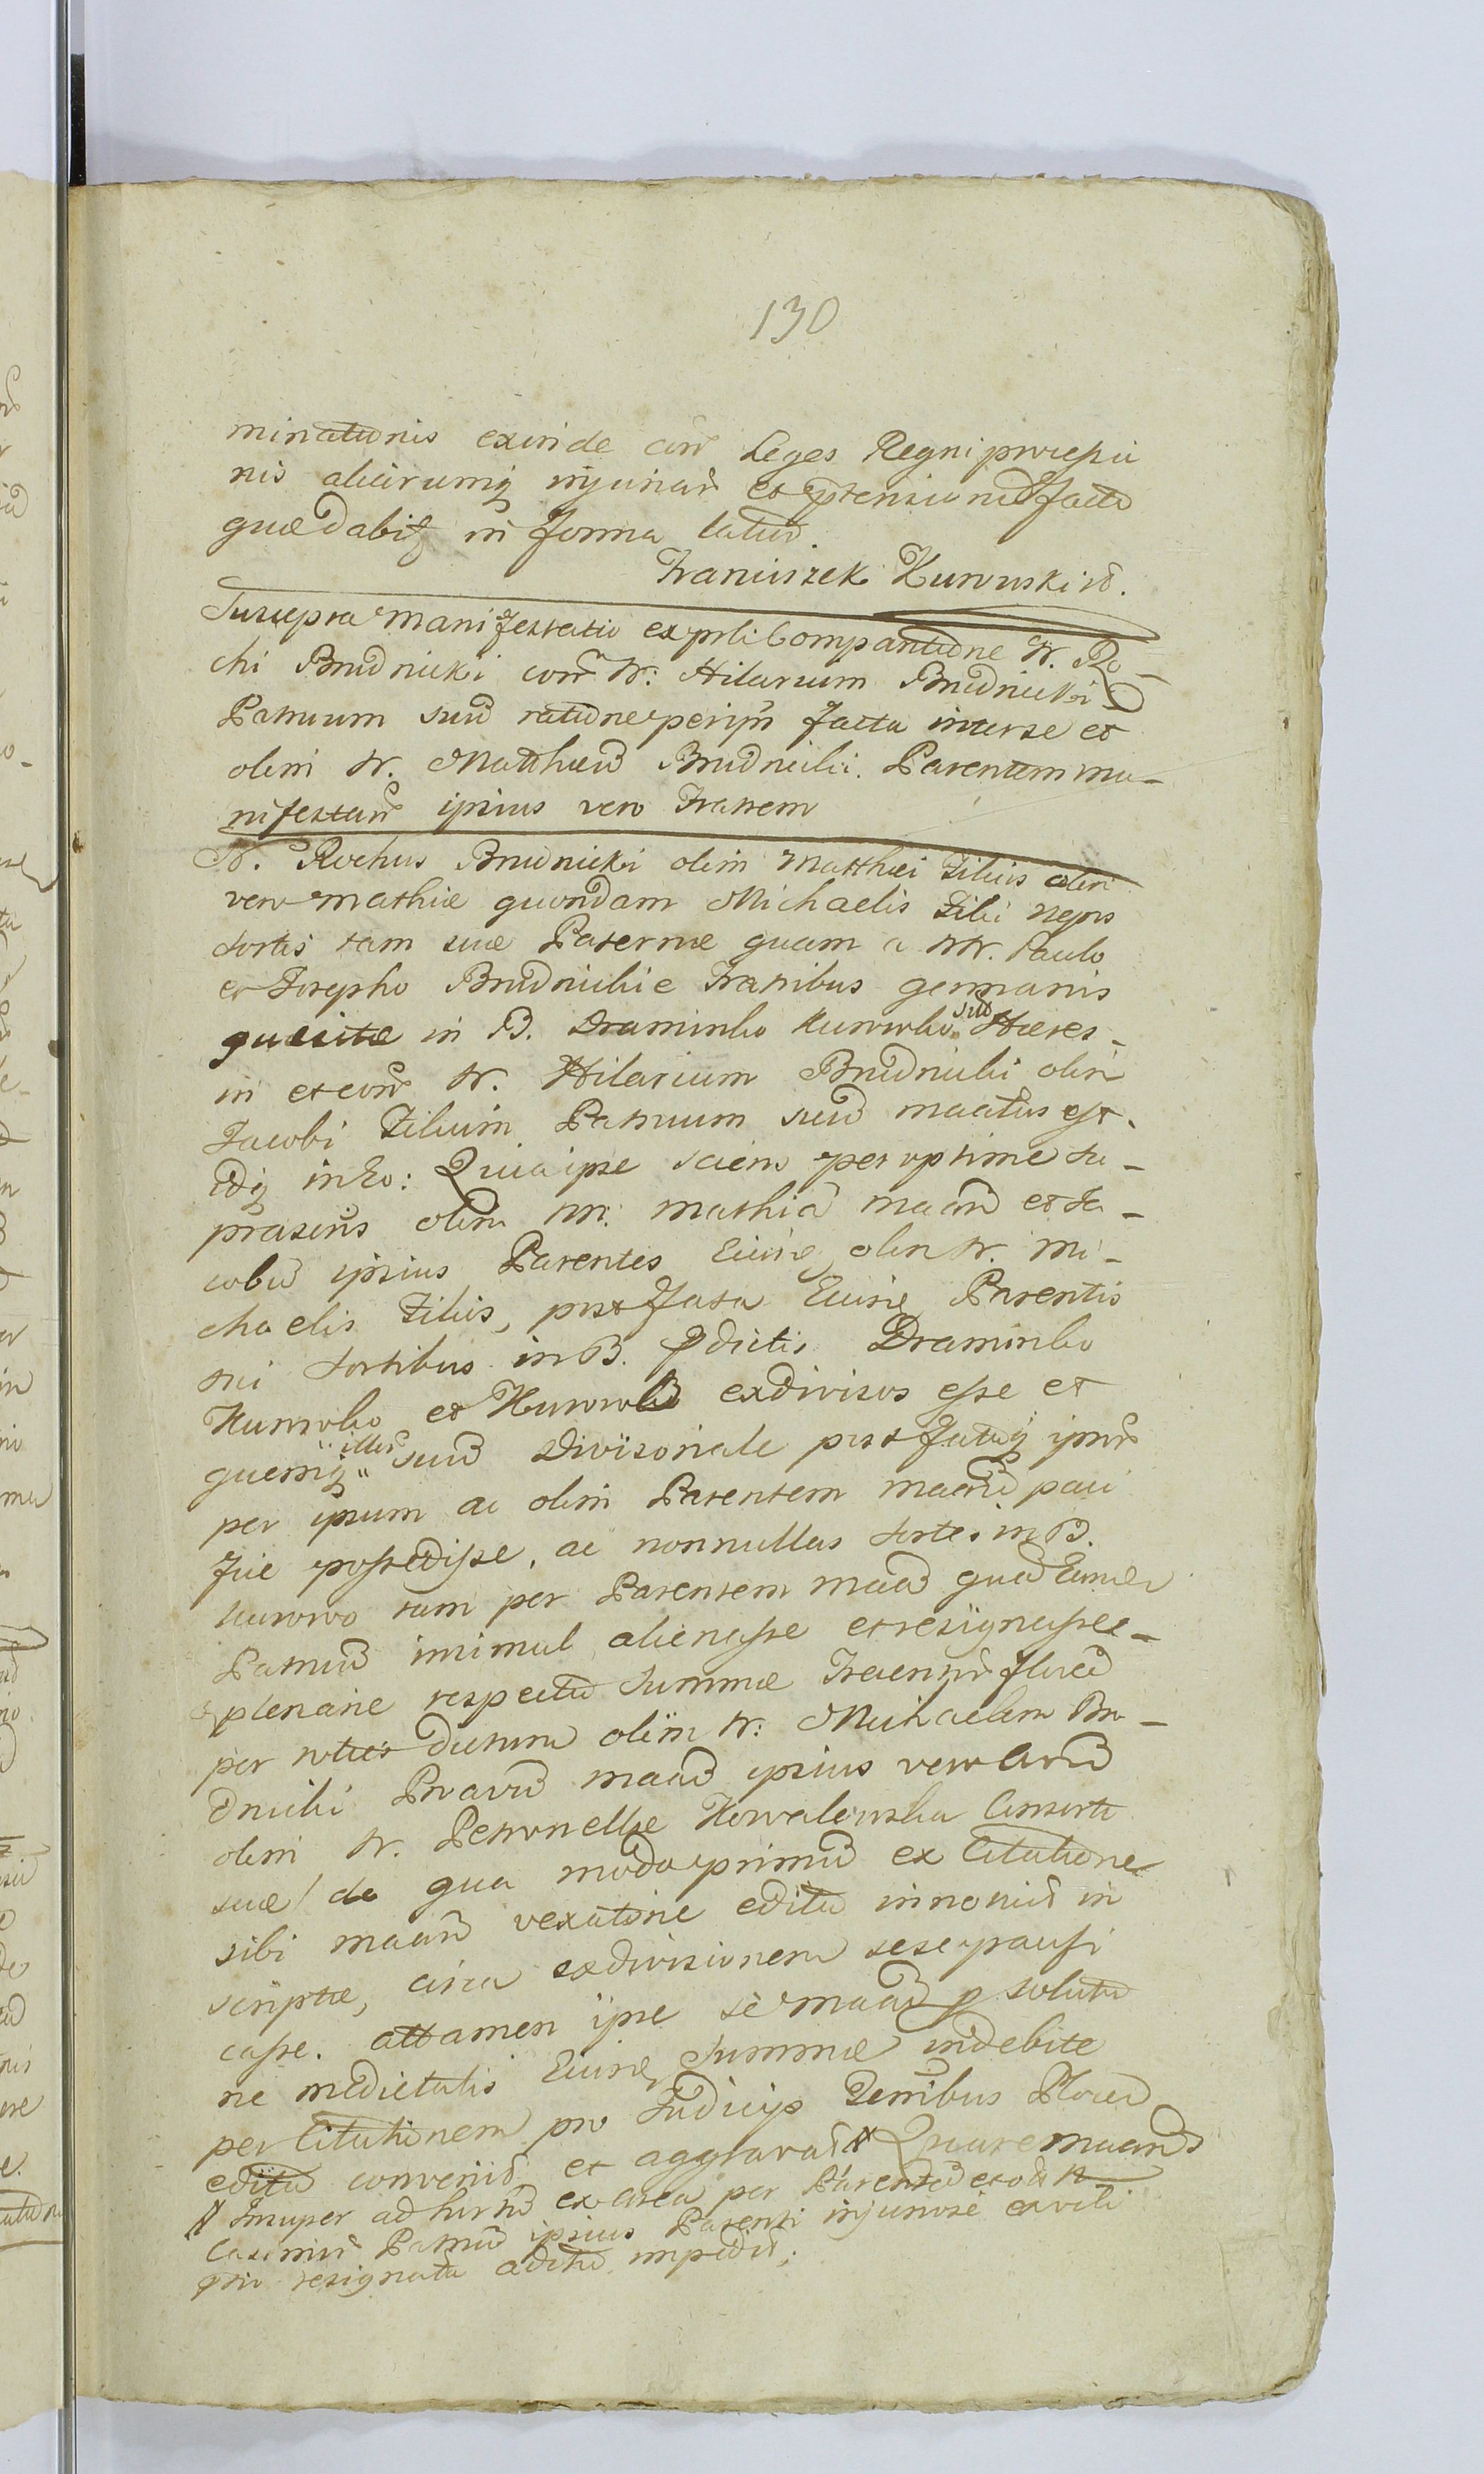 130
minationis exinde con̄ Leges Regni præsu
nis aliarumq injuriar̄ et p̄tensionū facta
quæ dabit̄ in forma latiū.
Franciszek Kurowski mp.
Suscepta Manifestatio ex p̄sli Comparitione N. Ro-
chi Brudnicki con̄ N: Hilarium Brudnicki
Patruum suū ratione perip̄m facta interse et
olim N. Matthæū Brudnicki. Parentem ma-
nifestan̄ ipsius vero Fratrem
N. Rochus Brudnicki olim Matthæi Filius olim
vero Mathiæ quondam Michaelis Filii Nepos
sortis tam suæ Paternæ quam a NN. Paulo
et Josepho Brudnickie Fratribus germanis
quesitæ in B. Draminko Kurowko sitō Hæres
in et con̄ N. Hilarium Brudnicki olim
Jacobi Filium Patruum suū maatus est.
idq in Eo: Quia ipse sciens per optime su-
prasens olim NN: Mathiā maan̄ et Ja-
cobū ipsius Parentes Eiusd, olim N. Mi-
chaelis Filios, post fata Eiusd Parentis
sui Sortibus in B. p̄dictis Draminko
Kurowko et Kurowko exdivisos esse et
quemq illor̄ suū Divisionale post fataq ipsor̄
per ipsum ac olim Parentem maan̄ paci
fice possedisse, ac nonnullas sortes in B.
Kurowo tam per Parentem maan̄ quā Eund
Patruū insimul alienasse et resignasse
plenarie respectu Summæ Trecentor̄ florē
per toties dictum olim N: Michaelem Bru-
dnicki Proavū maan̄ ipsius vero Avū
olim N. Petronellæ Kowalewska Consorti
suæ / de qua modo primū ex Citatione
sibi maan̄ vexatione edita innotuit in
scriptæ, circa exdivisionem sese pacifi
casse. attamen ipse se maan̄ p soluti
ne medietatis Eiusd Summæ indebite
per Citationem pro Judiciis Terribus Ploceñ
editū convenit et aggravat # Quare maans
# Insuper ad hortū ex area per Parentē et olī N
Casimir̄ Patruū ipsius Parenti injuriose ex vili
p̄tio resignata aditū impedit;